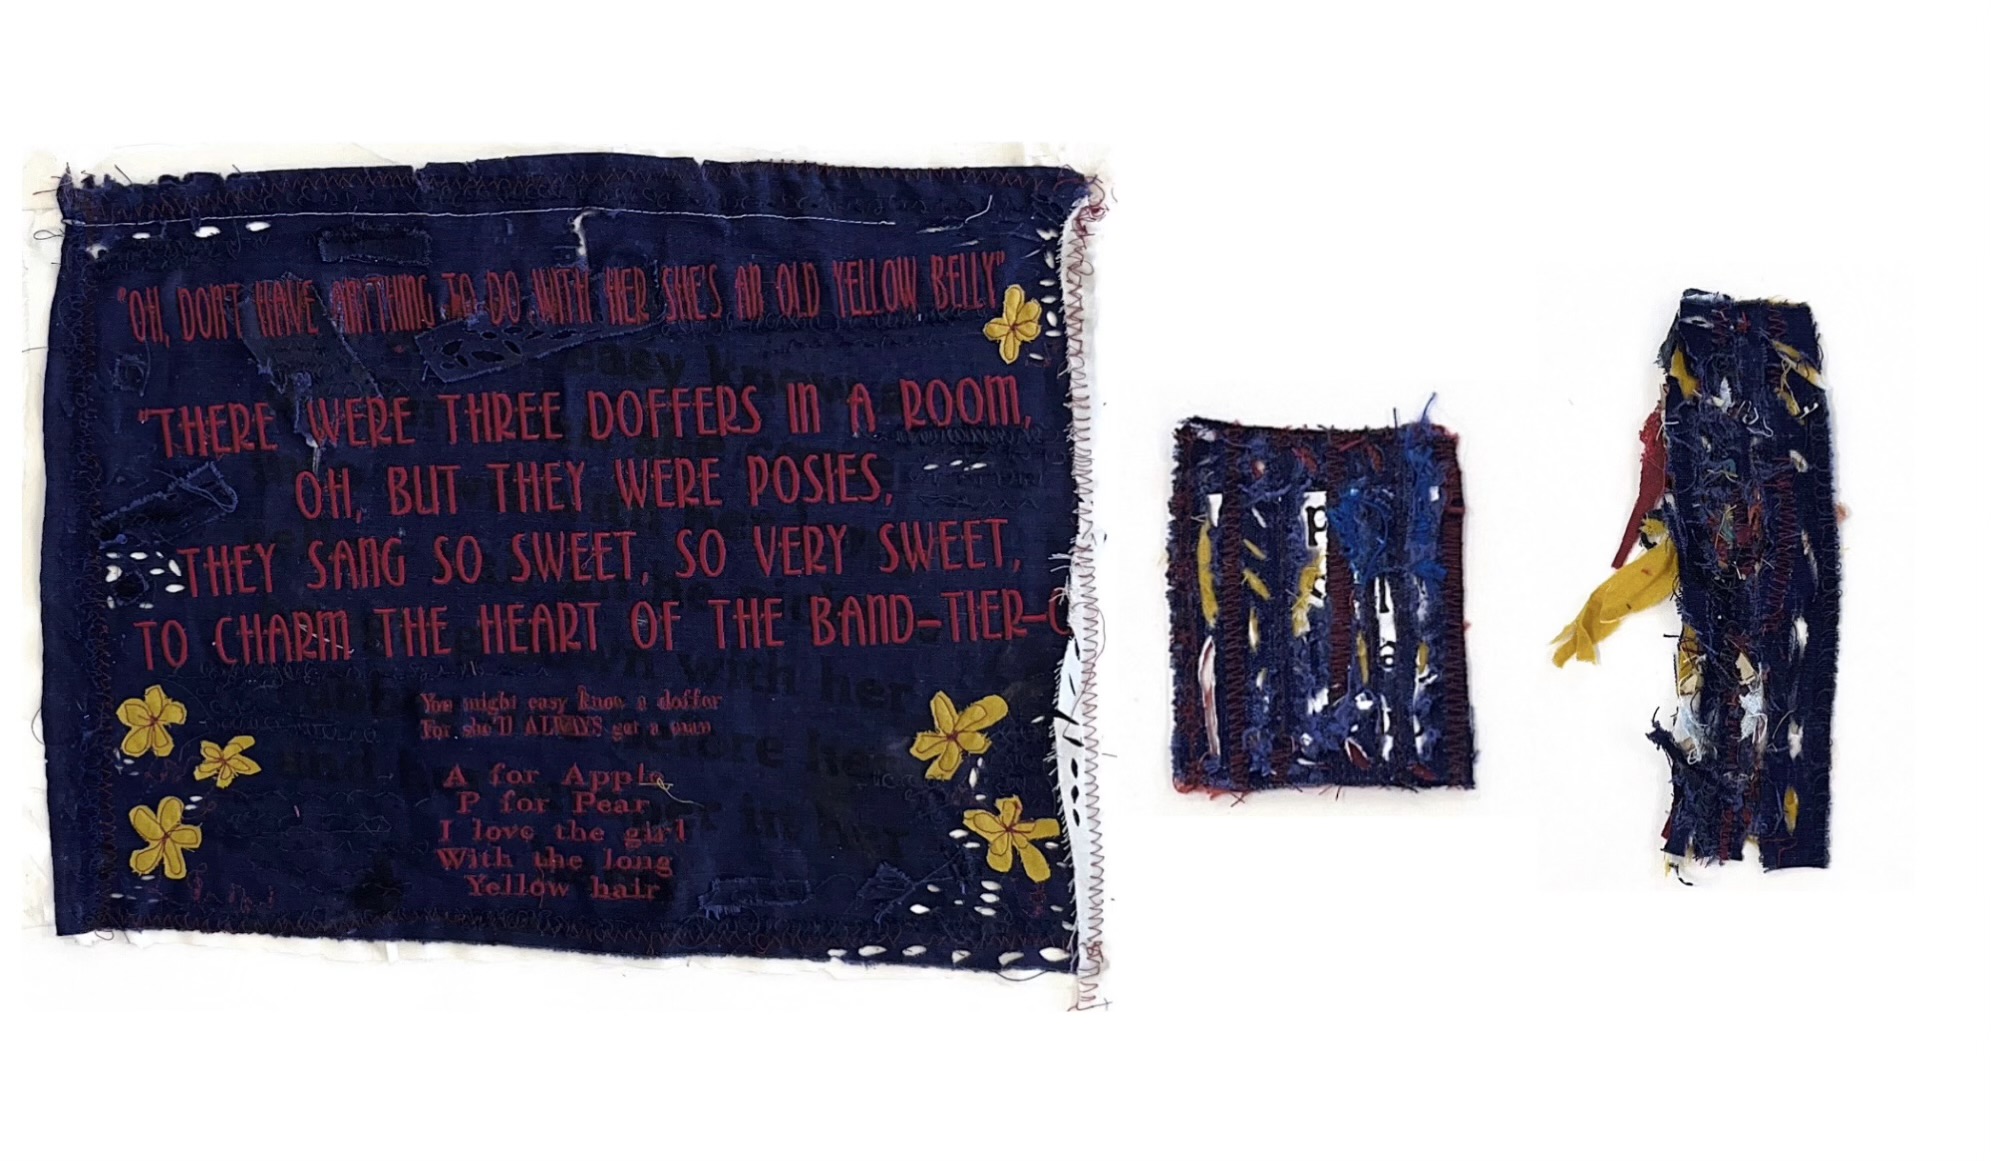 "OH, DON'T HAVE ANYTHING TO DO WITH HER SHE'S AN OLD YELLOW BELLY"
easy know
"THERE WERE THREE DOFFERS IN A ROOM,
OH, BUT THEY WERE POSIES,
THEY SANG SO SWEET, SO VERY SWEET,
TO CHARM THE HEART OF THE BAND-TIER-O
with her
You might easy know a doffer
For she'll ALWAYS get a man
before her
A for Apple
P for Pear
and
her in her
I love the girl
With the long
Yellow hair
p
l
a